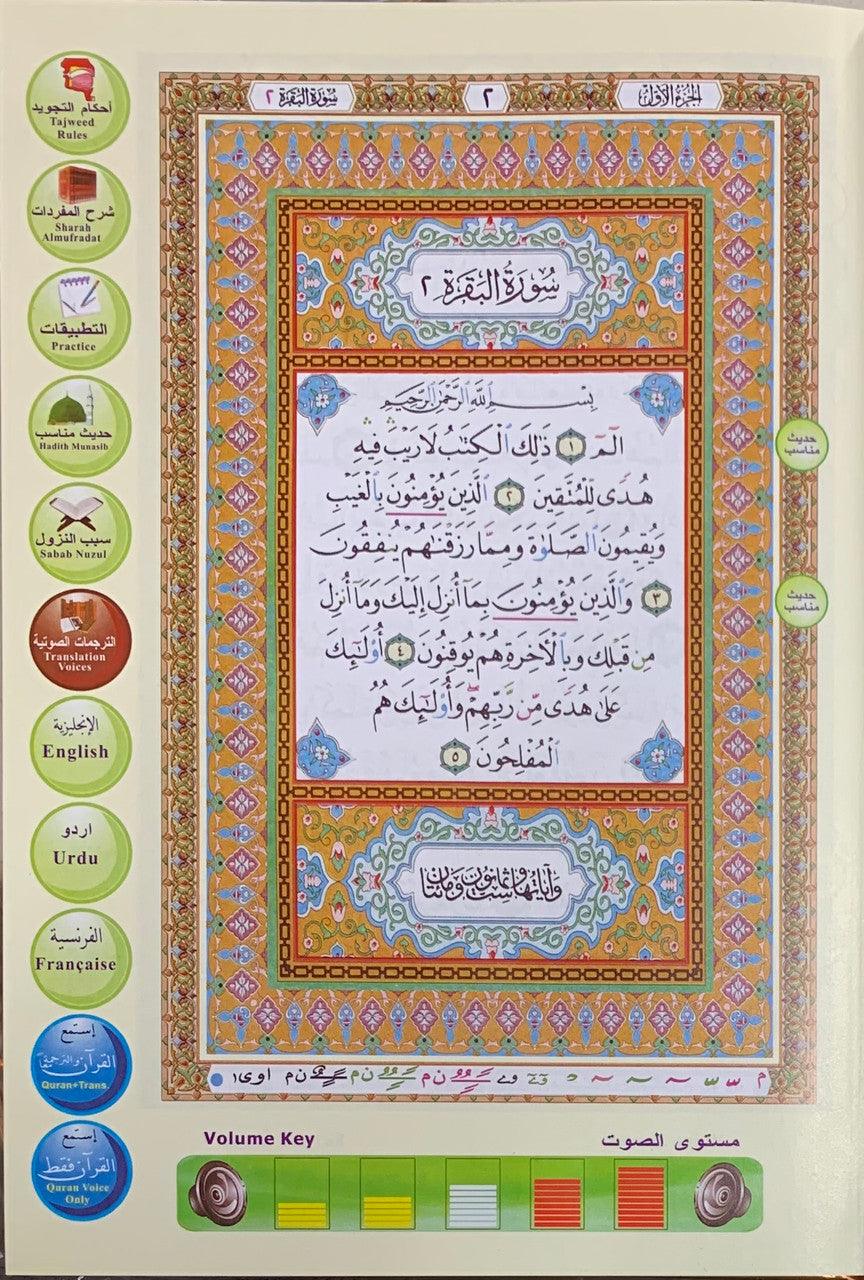 سورة البقرة ٢
٢
الجزء الأول
أحكام التجويد
Tajweed
Rules
شرح المفردات
Sharah
Almufradat
التطبيقات
Practice
حديث مناسب
Hadith Munasib
سبب النزول
Sabab Nuzul
الترجمات الصوتية
Translation
Voices
الإنجليزية
English
اردو
Urdu
الفرنسية
Française
إستمع
القرآن والترجمة معًا
Quran+Trans.
إستمع
القرآن فقط
Quran Voice
Only
سُورَةُ البَقَرَةِ ٢
بِسْمِ ٱللَّهِ ٱلرَّحْمَٰنِ ٱلرَّحِيمِ
الٓمٓ ١ ذَٰلِكَ ٱلْكِتَٰبُ لَا رَيْبَۛ فِيهِۛ
هُدًى لِّلْمُتَّقِينَ ٢ ٱلَّذِينَ يُؤْمِنُونَ بِٱلْغَيْبِ
وَيُقِيمُونَ ٱلصَّلَوٰةَ وَمِمَّا رَزَقْنَٰهُمْ يُنفِقُونَ
٣ وَٱلَّذِينَ يُؤْمِنُونَ بِمَآ أُنزِلَ إِلَيْكَ وَمَآ أُنزِلَ
مِن قَبْلِكَ وَبِٱلْءَاخِرَةِ هُمْ يُوقِنُونَ ٤ أُو۟لَٰٓئِكَ
عَلَىٰ هُدًى مِّن رَّبِّهِمْۖ وَأُو۟لَٰٓئِكَ هُمُ
ٱلْمُفْلِحُونَ ٥
وآياتها ست وثمانون ومائتان
حديث
مناسب
حديث
مناسب
Volume Key
مستوى الصوت